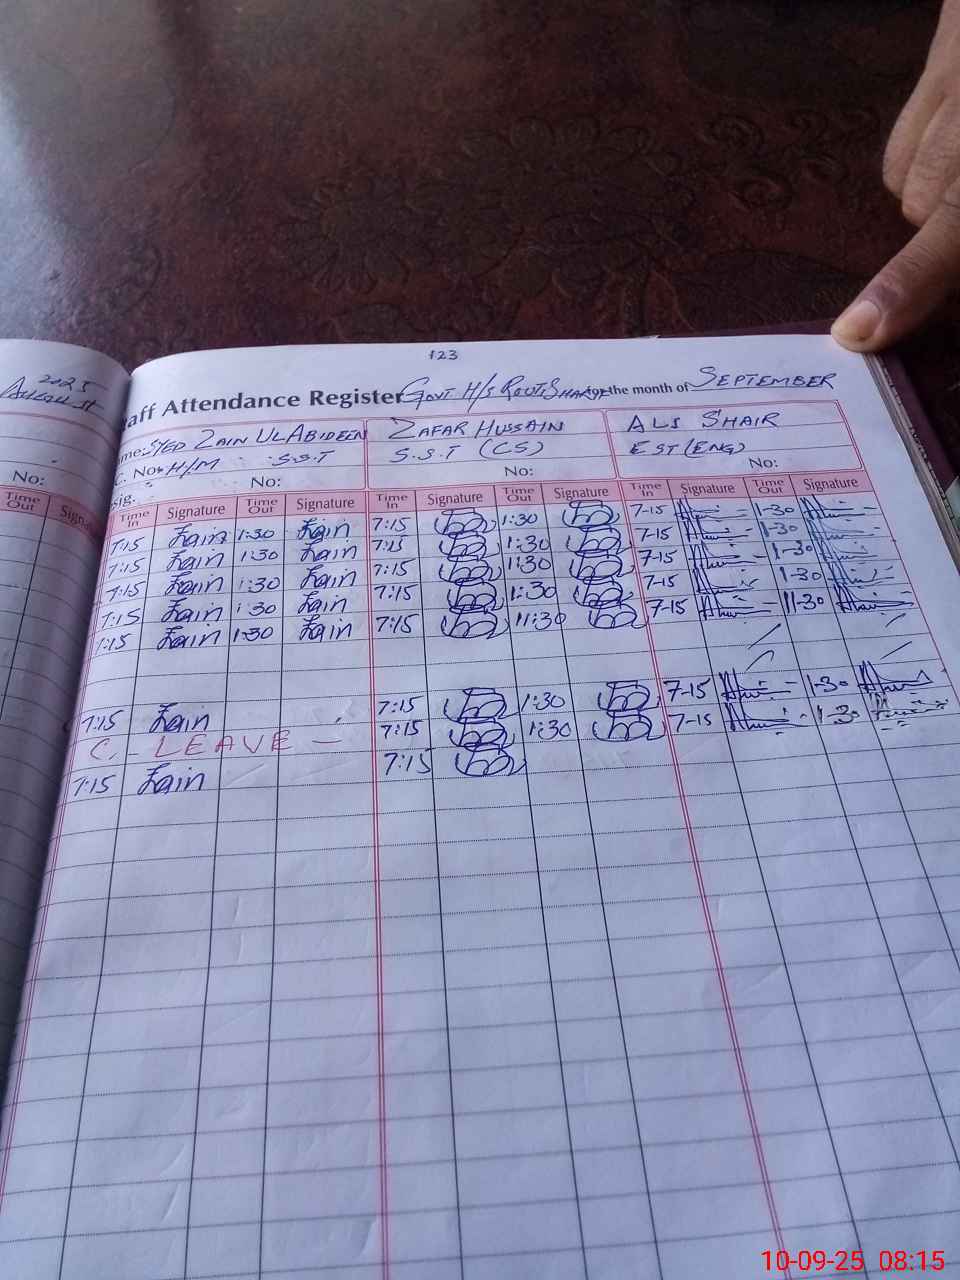 123
2025
August
aff Attendance Register Govt H/S for the month of September
me: Syed Zain Ul Abideen Zafar Hussain Ali Shair
C. No: H/M S.S.T S.S.T (CS) EST (ENG)
No: No: No: No:
Sig.
Time Out Signa Time In Signature Time Out Signature Time In Signature Time Out Signature Time In Signature Time Out Signature
7:15 Zain 1:30 Zain 7:15 1:30 7-15 1-30
7:15 Zain 1:30 Zain 7:15 1:30 7-15 1-30
7:15 Zain 1:30 Zain 7:15 1:30 7-15 1-30
7:15 Zain 1:30 Zain 7:15 1:30 7-15 1-30
7:15 Zain 1:30 Zain 7:15 11:30 7-15 11-30
7:15 Zain 7:15 1:30 7-15 1-30
C. LEAVE - 7:15 1:30 7-15 1-30
7:15 Zain 7:15
10-09-25 08:15